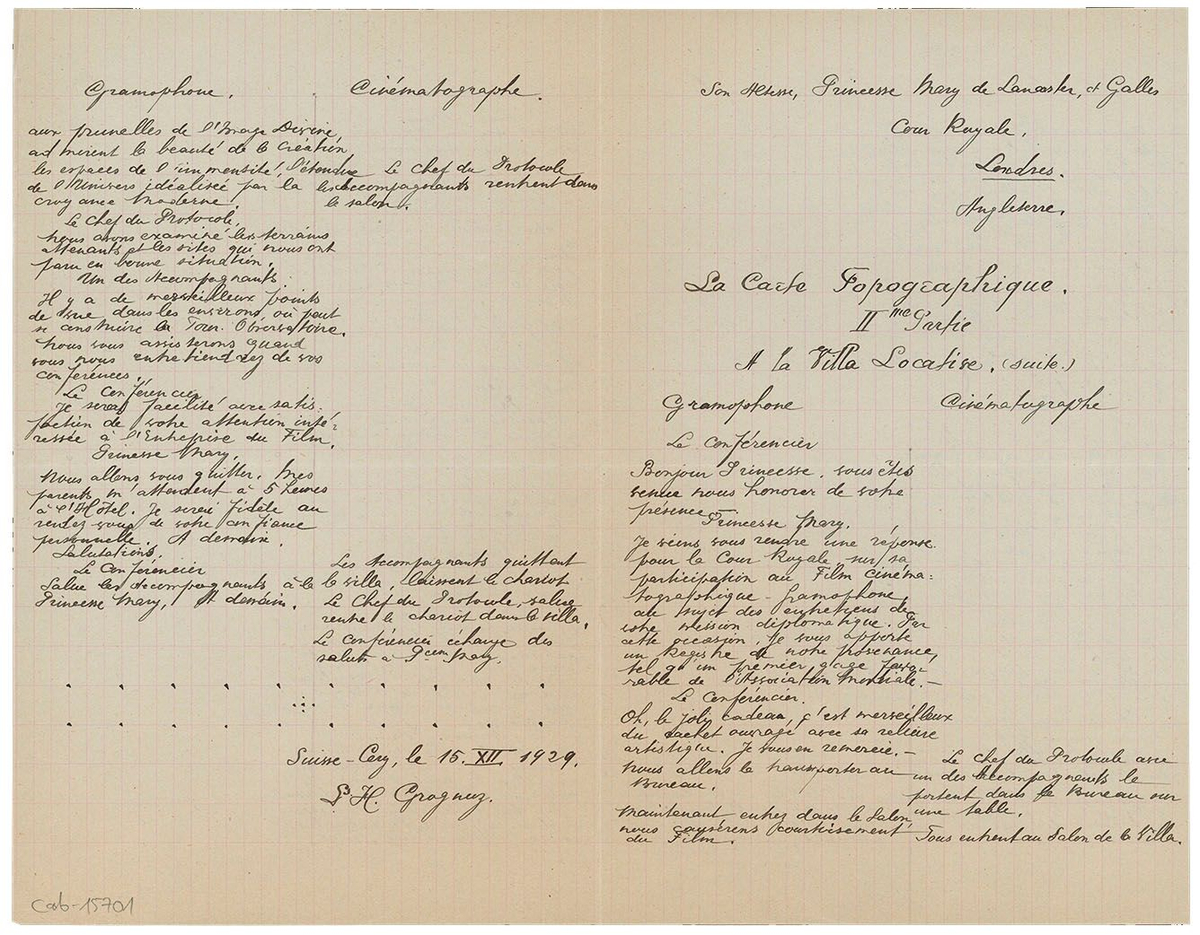 Gramophone.
Cinématographe.
aux prunelles de l'Image Divine,
admirent la beauté de la Création
les espaces de l'immensité, l'étendue
de l'Univers idéalisée par la
croyance Moderne.
Le Chef du Protocole.
Nous avons examiné les terrains
attenants et les sites qui nous ont
paru en bonne situation.
Un des Accompagnants.
Il y a de merveilleux points
de vue dans les environs, où peut
se construire la Tour-Observatoire.
Nous vous assisterons quand
vous nous entretiendrez de vos
conférences.
Le Conférencier
Je serai facilité avec satis:
faction de votre attention inté-
ressée à l'Entreprise du Film.
Prinesse Mary,
Nous allons vous quitter. Mes
parents m'attendent à 5 heures
à l'Hôtel. Je serai fidèle au
rendez vous de votre confiance
personnelle. A demain.
Salutations.
Le Conférencier
Salue les Accompagnants à la
Princesse Mary, A demain.
Le Chef du Protocole
les Accompagnants rentrent dans
le salon.
Les Accompagnants quittant
la villa, laissent le chariot
Le Chef du Protocole, salue
rentre le chariot dans la villa.
Le Conférencier échange des
saluts à Pcesse Mary.
Suisse-Cery, le 15. XII. 1929.
H. Grognuz.
Cab-15701
Son Altesse, Princesse Mary de Lancaster, & Galles
Cour Royale.
Londres.
Angleterre.
La Carte Topographique.
II me Partie
A la Villa Locative. (suite.)
Gramophone
Cinématographe
Le Conférencier
Bonjour Princesse, vous êtes
venue nous honorer de votre
présence.
Princesse Mary.
Je viens vous rendre une réponse
pour la Cour Royale, sur sa
participation au Film cinéma:
tographique-Gramophone,
au sujet des entretiens de
votre mission diplomatique. Par
cette occasion, Je vous apporte
un Registre de notre provenance,
tel qu'un premier gage favo-
rable de l'Association Mondiale.—
Le Conférencier.
Oh, le joly cadeau, c'est merveilleux
du cachet ouvragé avec sa reliure
artistique. Je vous en remercie.—
Nous allons le transporter au
Bureau.
Maintenant entrez dans le Salon,
nous causérons courtoisement
du Film.
Le Chef du Protocole avec
un des Accompagnants le
portent dans le Bureau sur
une table.
Tous entrent au Salon de la Villa.